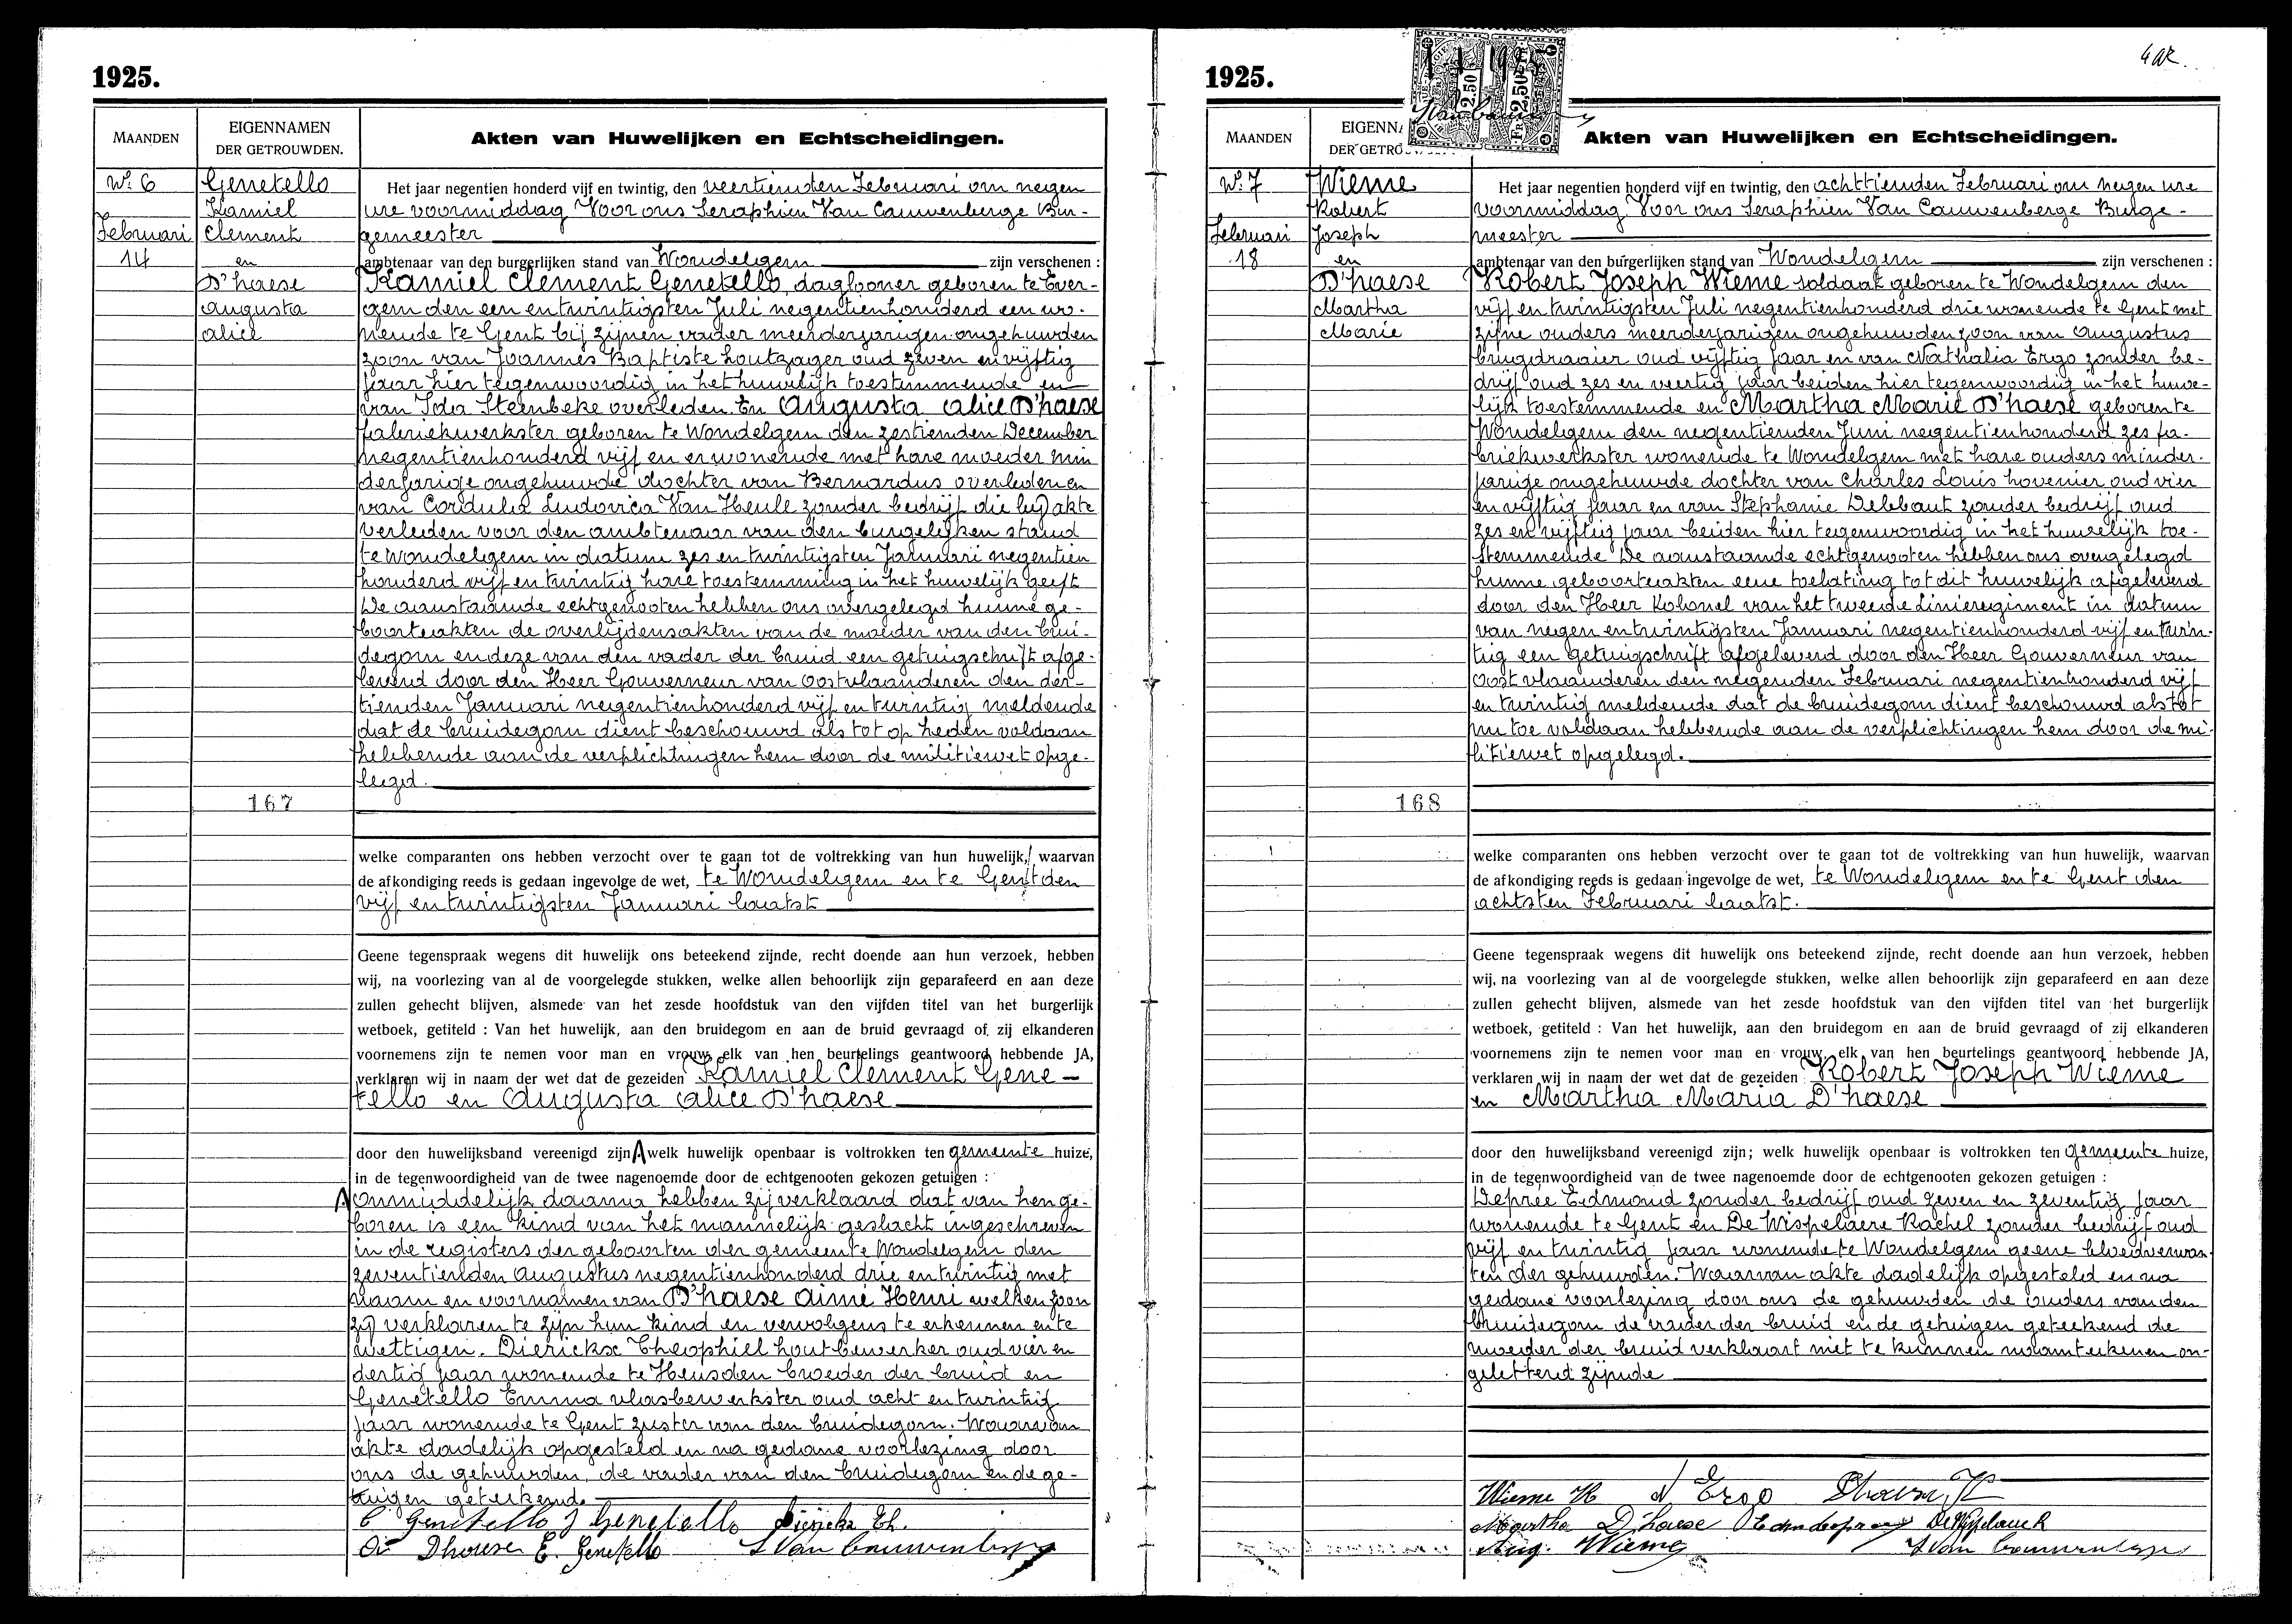 1925.
MAANDEN
EIGENNAMEN
DER GETROUWDEN.
Akten van Huwelijken en Echtscheidingen.
N.r 6
Februari
14
Genetello
Kamiel
Clement
en
D'haese
Augusta
Alice
167
Het jaar negentien honderd vijf en twintig, den veertienden Februari om negen
ure voormiddag Voor ons Seraphien Van Cauwenberge Bur-
gemeester
ambtenaar van den burgerlijken stand van Wondelgem zijn verschenen :
Kamiel Clement Genetello, daglooner geboren te Ever-
gem den een en twintigsten Juli negentienhonderd een wo-
nende te Gent bij zijnen vader meerderjarigen ongehuwden
zoon van Joannes Baptiste houtzager oud zeven en vijftig
jaar hier tegenwoordig in het huwelijk toestemmende en
van Ida Steenbeke overleden En Augusta Alice D'haese
fabriekwerkster geboren te Wondelgem den zestienden December
negentienhonderd vijf en er wonende met hare moeder min
derjarige ongehuwde dochter van Bernardus overleden en
van Cordula Ludovica Van Heule zonder bedrijf die bij akte
verleden voor den ambtenaar van den burgelijken stand
te Wondelgem in datum zes en twintigsten Januari negentien
honderd vijf en twintig hare toestemming in het huwelijk geeft
De aanstaande echtgenooten hebben ons overgelegd hunne ge-
boorteakten de overlijdensakten van de moeder van den brui-
degom en deze van den vader der bruid een getuigschrift afge-
leverd door den Heer Gouverneur van Oostvlaanderen den der-
tienden Januari negentienhonderd vijf en twintig meldende
dat de bruidegom dient beschouwd als tot op heden voldaan
hebbende aan de verplichtingen hem door de militiewet opge-
legd.
welke comparanten ons hebben verzocht over te gaan tot de voltrekking van hun huwelijk, waarvan
de afkondiging reeds is gedaan ingevolge de wet, te Wondelgem en te Gent den
vijf en twintigsten Januari laatst
Geene tegenspraak wegens dit huwelijk ons beteekend zijnde, recht doende aan hun verzoek, hebben
wij, na voorlezing van al de voorgelegde stukken, welke allen behoorlijk zijn geparafeerd en aan deze
zullen gehecht blijven, alsmede van het zesde hoofdstuk van den vijfden titel van het burgerlijk
wetboek, getiteld : Van het huwelijk, aan den bruidegom en aan de bruid gevraagd of zij elkanderen
voornemens zijn te nemen voor man en vrouw, elk van hen beurtelings geantwoord hebbende JA,
verklaren wij in naam der wet dat de gezeiden Kamiel Clement Gene-
tello en Augusta Alice D'haese
door den huwelijksband vereenigd zijn A welk huwelijk openbaar is voltrokken ten gemeente huize,
in de tegenwoordigheid van de twee nagenoemde door de echtgenooten gekozen getuigen :
A Onmiddelijk daarna hebben zij verklaard dat van hen ge-
boren is een kind van het mannelijk geslacht ingeschreven
in de registers der geboorten der gemeente Wondelgem den
zeventienden Augustus negentienhonderd drie en twintig met
naam en voornamen van D'haese Aimé Henri welken zoon
zij verklaren te zijn hun kind en vervolgens te erkennen en te
wettigen. Dierickx Theophiel houtbewerker oud vier en
dertig jaar wonende te Heusden broeder der bruid en
Genetello Emma vlasbewerkster oud acht en twintig
jaar wonende te Gent zuster van den bruidegom. Waarvan
akte dadelijk opgesteld en na gedane voorlezing door
ons de gehuwden, de vader van den bruidegom en de ge-
tuigen geteekend.
C Genetello J Genetello Dierickx Th.
D'haese E. Genetello S Van Cauwenberge
1925.
MAANDEN
EIGENNA
DER GETRO
Fr 2,50
2.50
Akten van Huwelijken en Echtscheidingen.
N.r 7
Februari
18
Wieme
Robert
Joseph
en
D'haese
Martha
Marie
168
Het jaar negentien honderd vijf en twintig, den achttienden Februari om negen ure
voormiddag Voor ons Seraphien Van Cauwenberge Burge-
meester
ambtenaar van den burgerlijken stand van Wondelgem zijn verschenen :
Robert Joseph Wieme soldaat geboren te Wondelgem den
vijf en twintigsten Juli negentienhonderd drie wonende te Gent met
zijne ouders meerderjarigen ongehuwden zoon van Augustus
brugdraaier oud vijftig jaar en van Nathalia Ergo zonder be-
drijf oud zes en veertig jaar beiden hier tegenwoordig in het huwe-
lijk toestemmende en Martha Marie D'haese geboren te
Wondelgem den negentienden Juni negentienhonderd zes fa-
briekwerkster wonende te Wondelgem met hare ouders minder-
jarige ongehuwde dochter van Charles Louis hovenier oud vier
en vijftig jaar en van Stephanie Debbaut zonder bedrijf oud
zes en vijftig jaar beiden hier tegenwoordig in het huwelijk toe-
stemmende De aanstaande echtgenooten hebben ons overgelegd
hunne geboorteakten eene toelating tot dit huwelijk afgeleverd
door den Heer Kolonel van het tweede Linieregiment in datum
van negen en twintigsten Januari negentienhonderd vijf en twin-
tig een getuigschrift afgeleverd door den Heer Gouverneur van
Oost vlaanderen den negenden Februari negentienhonderd vijf
en twintig meldende dat de bruidegom dient beschouwd als tot
nu toe voldaan hebbende aan de verplichtingen hem door de mi-
litiewet opgelegd.
welke comparanten ons hebben verzocht over te gaan tot de voltrekking van hun huwelijk, waarvan
de afkondiging reeds is gedaan ingevolge de wet, te Wondelgem en te Gent den
achtsten Februari laatst.
Geene tegenspraak wegens dit huwelijk ons beteekend zijnde, recht doende aan hun verzoek, hebben
wij, na voorlezing van al de voorgelegde stukken, welke allen behoorlijk zijn geparafeerd en aan deze
zullen gehecht blijven, alsmede van het zesde hoofdstuk van den vijfden titel van het burgerlijk
wetboek, getiteld : Van het huwelijk, aan den bruidegom en aan de bruid gevraagd of zij elkanderen
voornemens zijn te nemen voor man en vrouw, elk van hen beurtelings geantwoord hebbende JA,
verklaren wij in naam der wet dat de gezeiden Robert Joseph Wieme
en Martha Maria D'haese
door den huwelijksband vereenigd zijn; welk huwelijk openbaar is voltrokken ten gemeente huize,
in de tegenwoordigheid van de twee nagenoemde door de echtgenooten gekozen getuigen :
Deprée Edmond zonder bedrijf oud zeven en zeventig jaar
wonende te Gent en De Wispelaere Rachel zonder bedrijf oud
vijf en twintig jaar wonende te Wondelgem geene bloedverwan-
ten der gehuwden. Waarvan akte dadelijk opgesteld en na
gedane voorlezing door ons de gehuwden de ouders van den
bruidegom de vader der bruid en de getuigen geteekend de
moeder der bruid verklaart niet te kunnen naamteekenen on-
geletterd zijnde
Wieme R N Ergo
Martha D'haese
Aug. Wieme S Van Cauwenberge